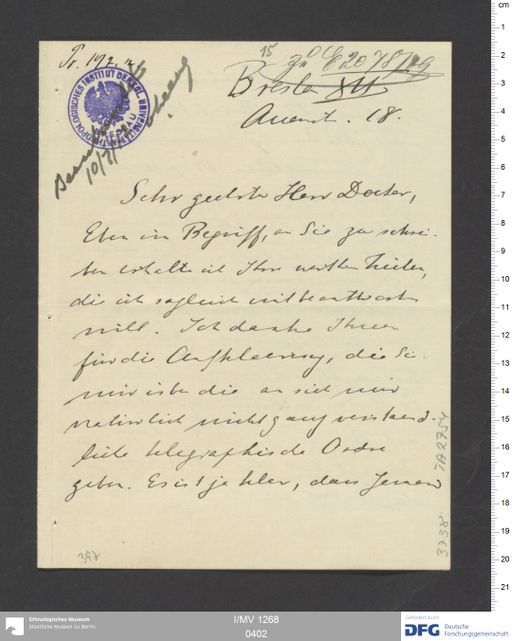 Pr. 19/2.
15
zu E 2078/09
Breslau XII
August. 18.
ANTHROPOLOGISCHES INSTITUT DER KGL. UNIVERSITÄT
BRESLAU
10/2
Sehr geehrter Herr Doctor,
Eben im Begriff, an Sie zu schrei-
ben erhalte ich Ihre werthen Zeilen,
die ich sogleich mit beantworten
will. Ich danke Ihnen
für die Aufklaerung, die Sie
mir über die an sich mir
natürlich nicht ganz verstaend-
liche telegraphische Ordre
geben. Es ist ja klar, dass Jemand
IA 2754
3738
397
cm
1
2
3
4
5
6
7
8
9
10
11
12
13
14
15
16
17
18
19
20
21
Ethnologisches Museum
Staatliche Museen zu Berlin
I/MV 1268
0402
Gefördert durch
DFG Deutsche
Forschungsgemeinschaft